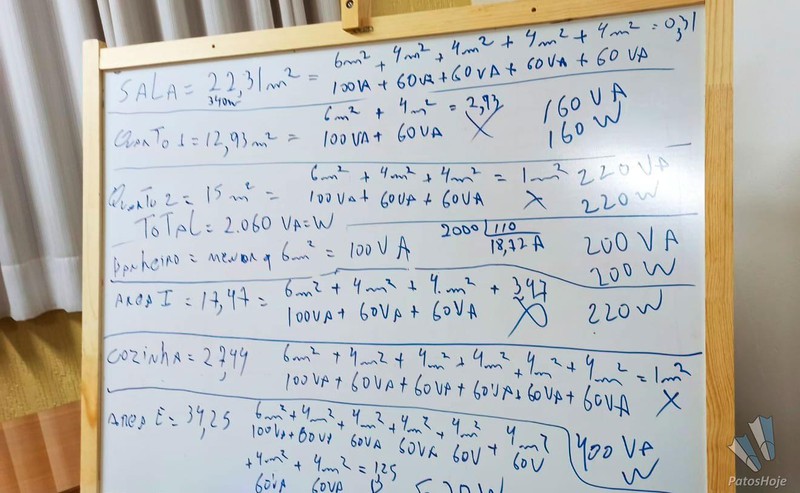 6m² + 4m² + 4m² + 4m² + 4m² = 0,31
SALA = 22,31m² =
340m²
100VA + 60VA + 60VA + 60VA + 60 VA
6m² + 4m² = 2,93 160 VA
QUARTO 1 = 12,93 m² =
100VA + 60VA X 160 W
6m² + 4m² + 4m² = 1m² 220 VA
QUARTO 2 = 15 m² =
100VA + 60VA + 60VA X 220 W
TOTAL = 2.060 VA=W
2000 110
18,72 A
BANHEIRO = MENOR q 6m² = 100 VA 200 VA
200 W
AREA I = 17,47 = 6m² + 4m² + 4m² + 3,47
100VA + 60VA + 60VA X 220 W
COZINHA = 27,44 6m² + 4m² + 4m² + 4m² + 4m² + 4m² = 1m²
100VA + 60VA + 60VA + 60VA + 60VA + 60VA X
AREA E = 34,25 6m² + 4m² + 4m² + 4m² + 4m² + 4m²
100VA + 60VA 60VA 60VA 60V 60V 400 VA
W
+4m² + 4m² = 1,25
60VA 60VA
PatosHoje